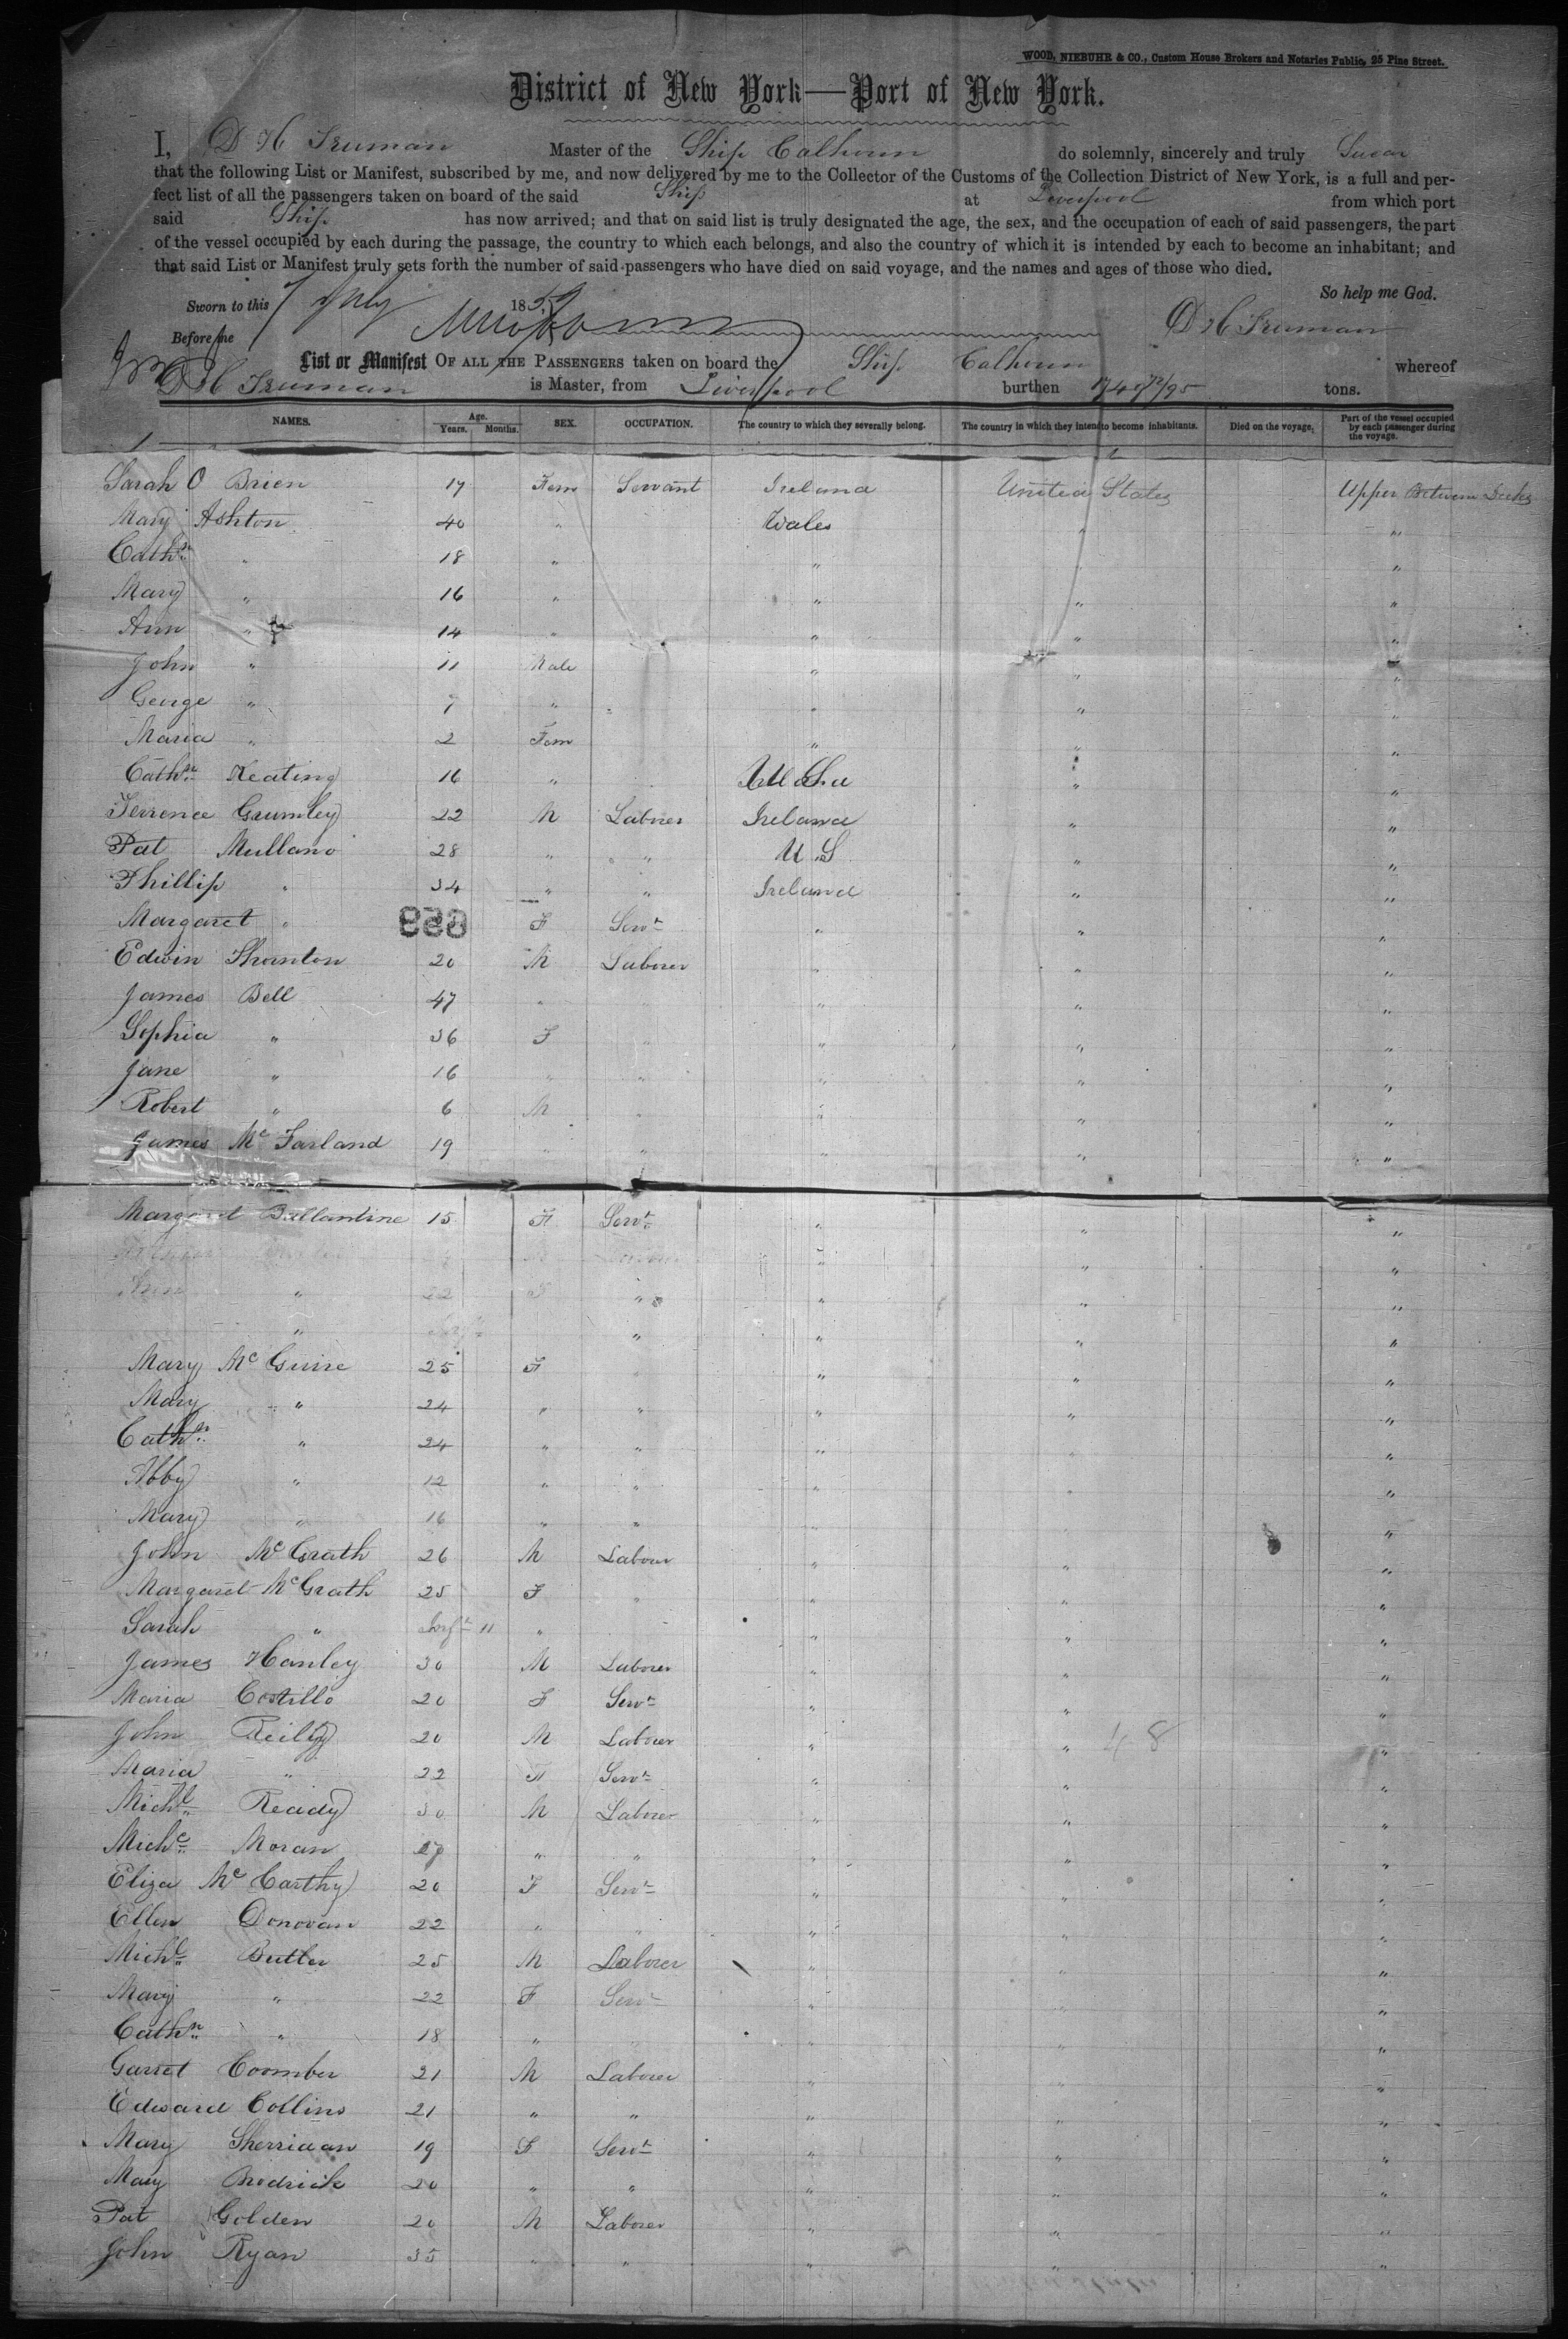 WOOD, NIEBUHR & CO., Custom House Brokers and Notaries Public, 25 Pine Street.
District of New York—Port of New York.
I, D H Truman Master of the Ship Calhoun do solemnly, sincerely and truly Swear
that the following List or Manifest, subscribed by me, and now delivered by me to the Collector of the Customs of the Collection District of New York, is a full and per-
fect list of all the passengers taken on board of the said Ship at Liverpool from which port
said Ship has now arrived; and that on said list is truly designated the age, the sex, and the occupation of each of said passengers, the part
of the vessel occupied by each during the passage, the country to which each belongs, and also the country of which it is intended by each to become an inhabitant; and
that said List or Manifest truly sets forth the number of said passengers who have died on said voyage, and the names and ages of those who died.
So help me God.
Sworn to this 7 July 1859
D H Truman
Before me
List or Manifest OF ALL THE PASSENGERS taken on board the Ship Calhoun whereof
D H Truman is Master, from Liverpool burthen 1740 72/95 tons.
NAMES. Age. Years. Months. SEX. OCCUPATION. The country to which they severally belong. The country in which they intend to become inhabitants. Died on the voyage. Part of the vessel occupied by each passenger during the voyage.
Sarah O Brien 17 Fem Servant Ireland United States Upper Between Decks
Mary Ashton 40 " Wales " "
Cathn " 18 " " " "
Mary " 16 " " " "
Ann " 14 " " " "
John " 11 Male " " "
George " 7 " " " "
Maria " 2 Fem " " "
Cathn Keating 16 " " "
Terrence Grumley 22 M Laborer Ireland " "
Pat Mullano 28 " " U S " "
Phillip " 34 " " Ireland " "
Margaret " 858 F Servt " " "
Edwin Thornton 20 M Laborer " " "
James Bell 47 " " " "
Sophia " 36 F " " " "
Jane " 16 " " " " "
Robert " 6 M " " " "
James Mc Farland 19 " " " " "
Margaret Ballantine 15 F Servt " " "
" " "
Ann " 22 F " " " "
" " " " "
Mary Mc Guire 25 F " " "
Mary " 24 " " " " "
Cathn " 24 " " " " "
Abby " 12 " " " " "
Mary " 16 " " " " "
John Mc Grath 26 M Labour " " "
Margaret Mc Grath 25 F " " " "
Sarah " Inft 11 " " " "
James Hanley 30 M Laborer " " "
Maria Costillo 20 F Servt " " "
John Reilly 20 M Laborer " " 48 "
Maria " 22 F Servt " " "
Michl Ready 30 M Laborer " " "
Michl Moran 27 " " " " "
Eliza Mc Carthy 20 F Servt " " "
Ellen Donovan 22 " " " " "
Michl Butler 25 M Laborer " " "
Mary " 22 F Servt " " "
Cathn " 18 " " " "
Garret Coomber 21 M Laborer " " "
Edward Collins 21 " " " " "
Mary Sherridan 19 F Servt " " "
Mary Brodrick 20 " " " " "
Pat Golden 20 M Laborer " " "
John Ryan 35 " " " " "